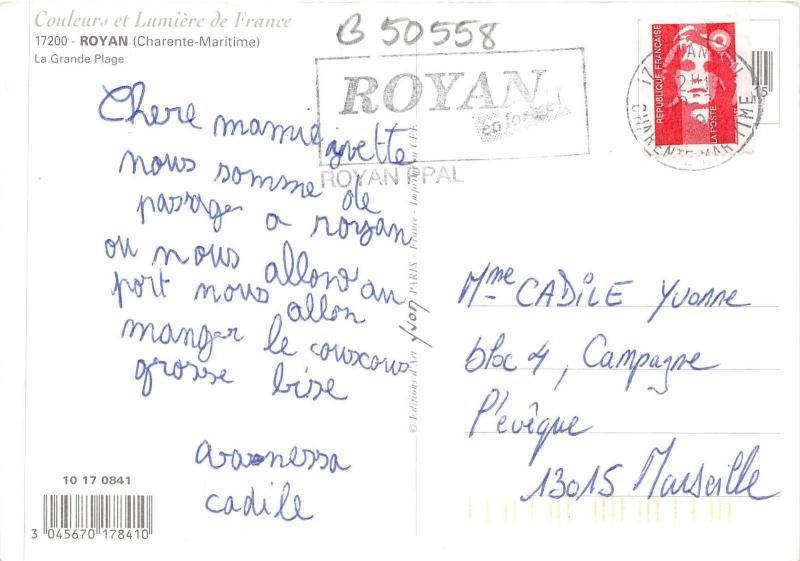 Couleurs et Lumière de France
17200 - ROYAN (Charente-Maritime)
La Grande Plage
B 50558
ROYAN
ROYAN PPAL
RÉPUBLIQUE FRANÇAISE
LA POSTE
CHARENTE-MARITIME
15
Chere mamie yvette
nous somme de
passage a royan
ou nous allons au
port nous allon
manger le couscous
grosse bise
vanessa
cadile
© Editions d'Art yvon PARIS - France - Imprimé en CEE
Mme CADILE Yvonne
bloc 4, Campagne
l'evêque
13015 Marseille
10 17 0841
3 045670 178410